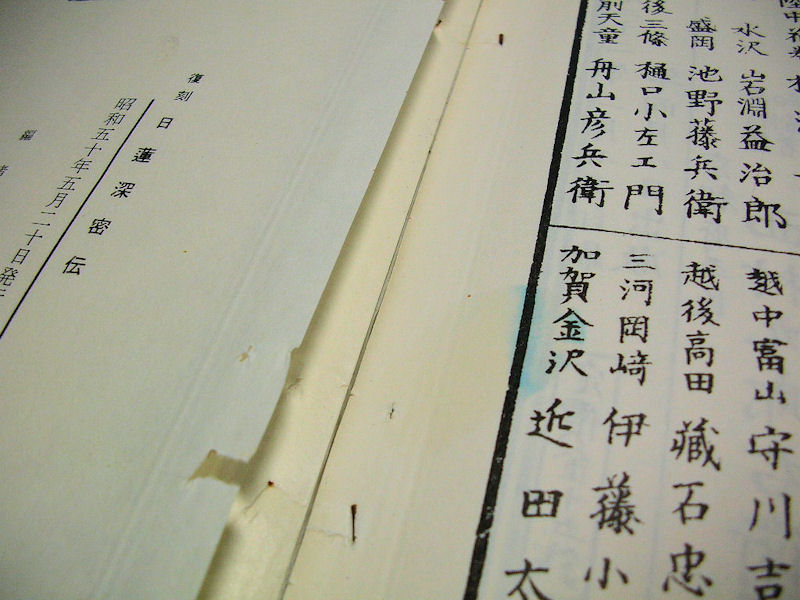 水沢 岩淵益治郎
盛岡 池野藤兵衛
後三條 樋口小左エ門
前天童 舟山彦兵衛
越中富山 守川吉
越後高田 蔵石忠
三河岡崎 伊藤小
加賀金沢 近田太
復刻 日蓮深密伝
昭和五十年五月二十日発行
編 者